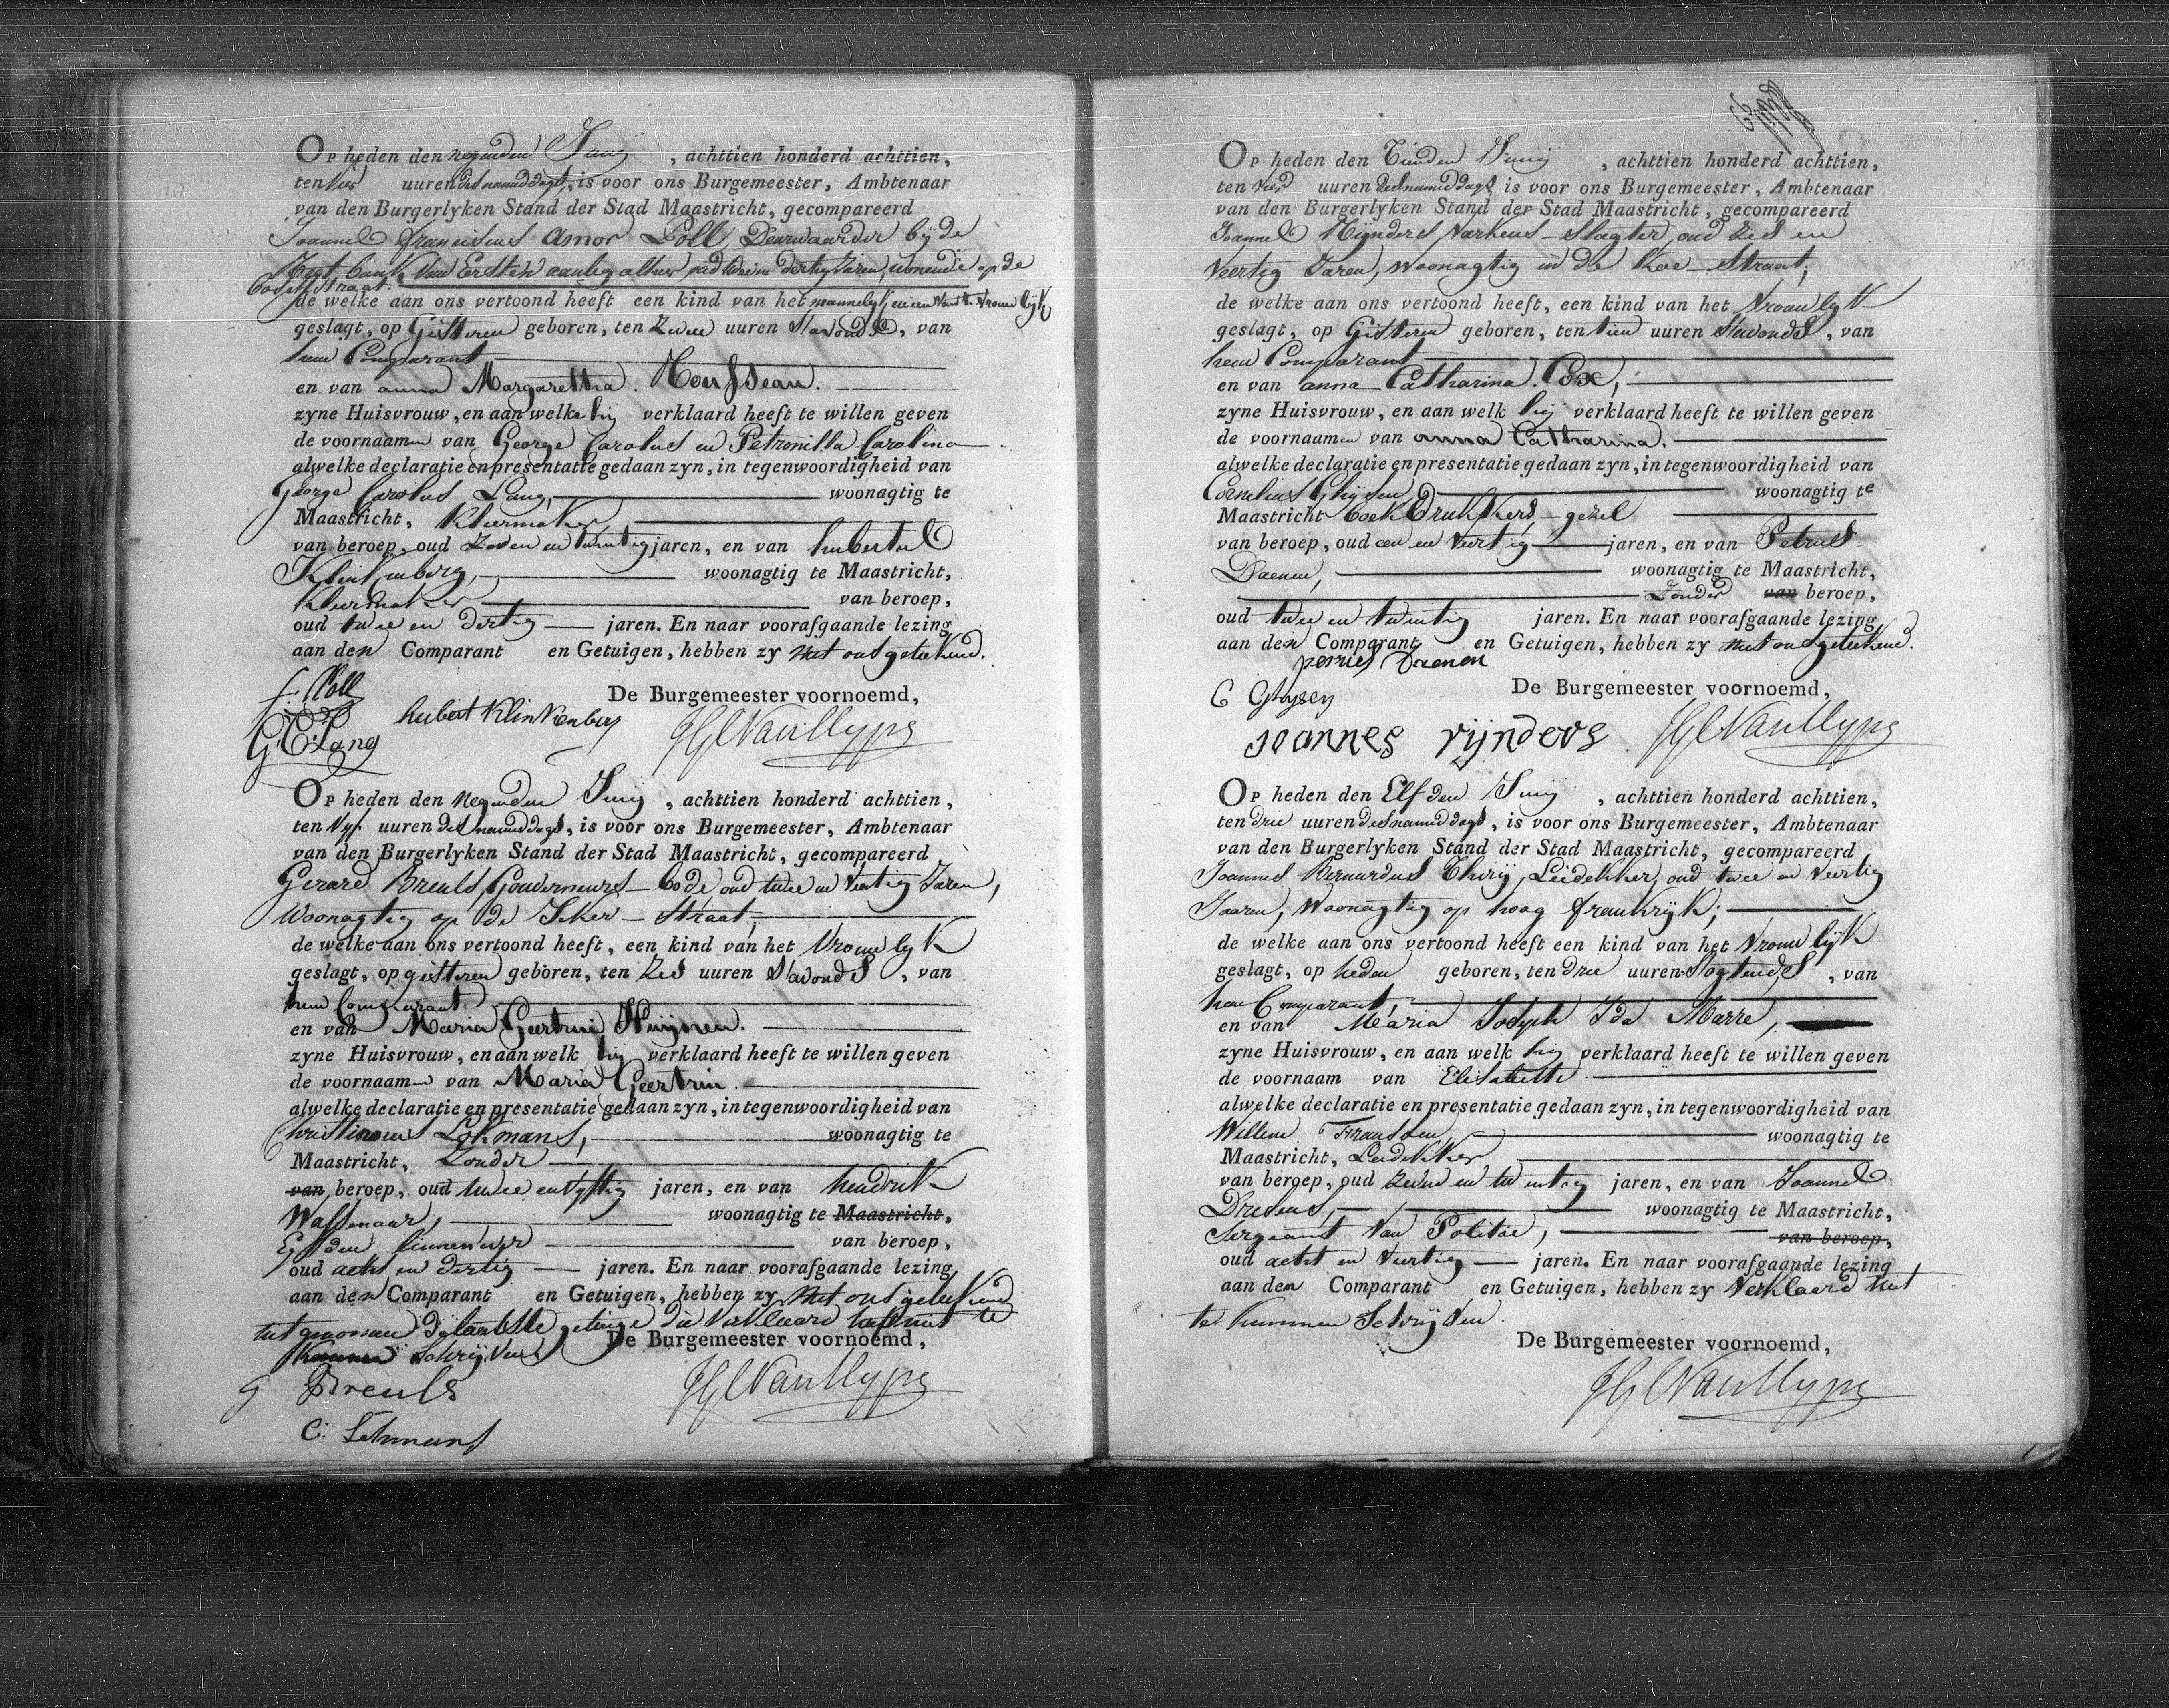 Op heden den negenden Junij, achttien honderd achttien,
ten vier uuren des namiddags, is voor ons Burgemeester, Ambtenaar
van den Burgerlyken Stand der Stad Maastricht, gecompareerd
Joannes Franciscus Amor Poll, Deurwaarder by de
Regt bank van Eersten aanleg alhier oud twee en dertig Jaren, wonende op de
straat.
de welke aan ons vertoond heeft een kind van het mannelyk en een van t vrouwlyk
geslagt, op Gisteren geboren, ten Zeven uuren S'avonds, van
hem Comparant
en van anna Margaretha Housseau.
zyne Huisvrouw, en aan welke hij verklaard heeft te willen geven
de voornaamen van George Carolus en Petronilla Carolina
alwelke declaratie en presentatie gedaan zyn, in tegenwoordigheid van
George Carolus Lang, woonagtig te
Maastricht, Kleermaker
van beroep, oud Zeven en twintig jaren, en van hubertus
Klinkenberg, woonagtig te Maastricht,
Kleermaker van beroep,
oud twee en dertig jaren. En naar voorafgaande lezing
aan den Comparant en Getuigen, hebben zy met ons geteekend.
De Burgemeester voornoemd,
f. Poll
hubert Klinkenberg
G: C: Lang
Op heden den negenden Junij, achttien honderd achttien,
ten vyf uuren des namiddags, is voor ons Burgemeester, Ambtenaar
van den Burgerlyken Stand der Stad Maastricht, gecompareerd
Gerard Breuls, Gouverneurs-bode oud twee en veertig Jaren,
Woonagtig op de Jeker-Straat,
de welke aan ons vertoond heeft, een kind van het Vrouwlyk
geslagt, op gisteren geboren, ten Zes uuren S'avonds, van
hem Comparant
en van Maria Geertrui
zyne Huisvrouw, en aan welk hij verklaard heeft te willen geven
de voornaamen van Maria Geertrui.
alwelke declaratie en presentatie gedaan zyn, in tegenwoordigheid van
Christinanus Lokmans, woonagtig te
Maastricht, Zonder
van beroep, oud twee en vyftig jaren, en van hendrik
Wassenaar, woonagtig te Maastricht,
Eysden linnenwever van beroep,
oud acht en dertig jaren. En naar voorafgaande lezing
aan den Comparant en Getuigen, hebben zy met ons geteekend
uitgenomen de laatste getuige die verklaard heeft niet te
kunnen schryven
De Burgemeester voornoemd,
G Breuls
C: Lokmans
Op heden den Tienden Junij, achttien honderd achttien,
ten vier uuren des namiddags, is voor ons Burgemeester, Ambtenaar
van den Burgerlyken Stand der Stad Maastricht, gecompareerd
Joannes Rijnders Varkens-slagter, oud Zes en
Veertig Jaren, woonagtig in de Koe Straat,
de welke aan ons vertoond heeft, een kind van het Vrouwlyk
geslagt, op Gisteren geboren, ten tien uuren S'avonds, van
hem Comparant
en van anna Catharina Cox,
zyne Huisvrouw, en aan welk hij verklaard heeft te willen geven
de voornaamen van anna Catharina.
alwelke declaratie en presentatie gedaan zyn, in tegenwoordigheid van
Cornelius Ghijsen woonagtig te
Maastricht boek Drukkers-gezel
van beroep, oud een en veertig jaren, en van Petrus
Daenen, woonagtig te Maastricht,
Zonder van beroep,
oud twee en twintig jaren. En naar voorafgaande lezing
aan den Comparant en Getuigen, hebben zy met ons geteekend.
Daenen
De Burgemeester voornoemd,
C Ghysen
joannes rijnders
Op heden den Elfden Junij, achttien honderd achttien,
ten drie uuren des namiddags, is voor ons Burgemeester, Ambtenaar
van den Burgerlyken Stand der Stad Maastricht, gecompareerd
Joannes Bernardus Thirij, Leidekker, oud twee en veertig
Jaaren, Woonagtig op hoog frankrijk;
de welke aan ons vertoond heeft een kind van het Vrouwlijk
geslagt, op heden geboren, ten drie uuren S'ogtends, van
hem Comparant,
en van Maria Joseph Ida Marre,
zyne Huisvrouw, en aan welk hij verklaard heeft te willen geven
de voornaam van Elisabeth
alwelke declaratie en presentatie gedaan zyn, in tegenwoordigheid van
Willem Franssen, woonagtig te
Maastricht, Leidekker
van beroep, oud Zeven en twintig jaren, en van Joannes
woonagtig te Maastricht,
Sergeant van Politie, van beroep,
oud acht en veertig jaren. En naar voorafgaande lezing
aan den Comparant en Getuigen, hebben zy verklaard niet
te kunnen Schrijven.
De Burgemeester voornoemd,